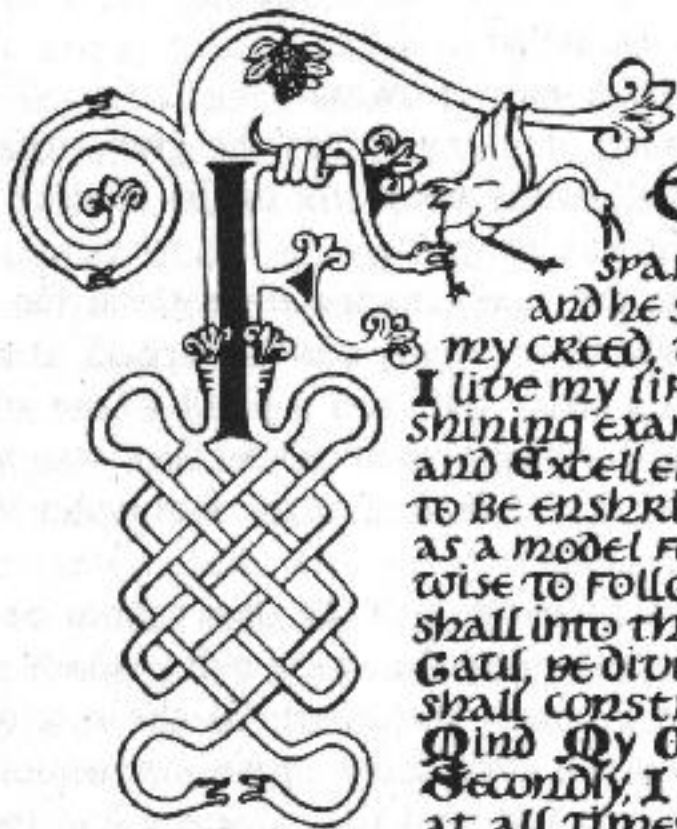 spar
and he s
my creed,
I live my lif
shining exam
and Excellen
to be enshri
as a model f
wise to follo
shall into th
Gaul, be div
shall constr
Mind My
Secondly, I
at all times